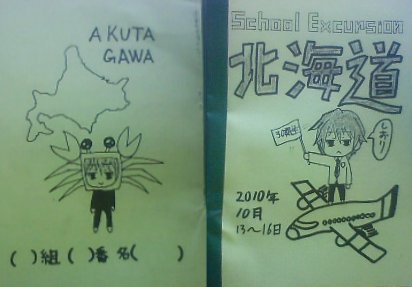 AKUTA
GAWA
( )組( )番 名( )
School Excursion
北海道
しおり
2010年
10月
13〜16日